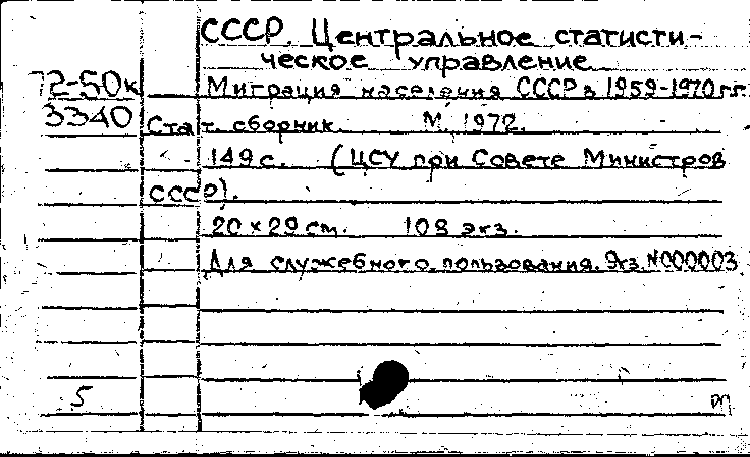 СССР. Центральное статисти-
ческое управление
72-50к Миграция населения СССР в 1959-1970 г.г.
3340 Стат. сборник. М. 1972.
149 с. (ЦСУ при Совете Министров
СССР).
20 х 29 см. 108 экз.
Для служебного пользования. Экз. №000003
5 рп